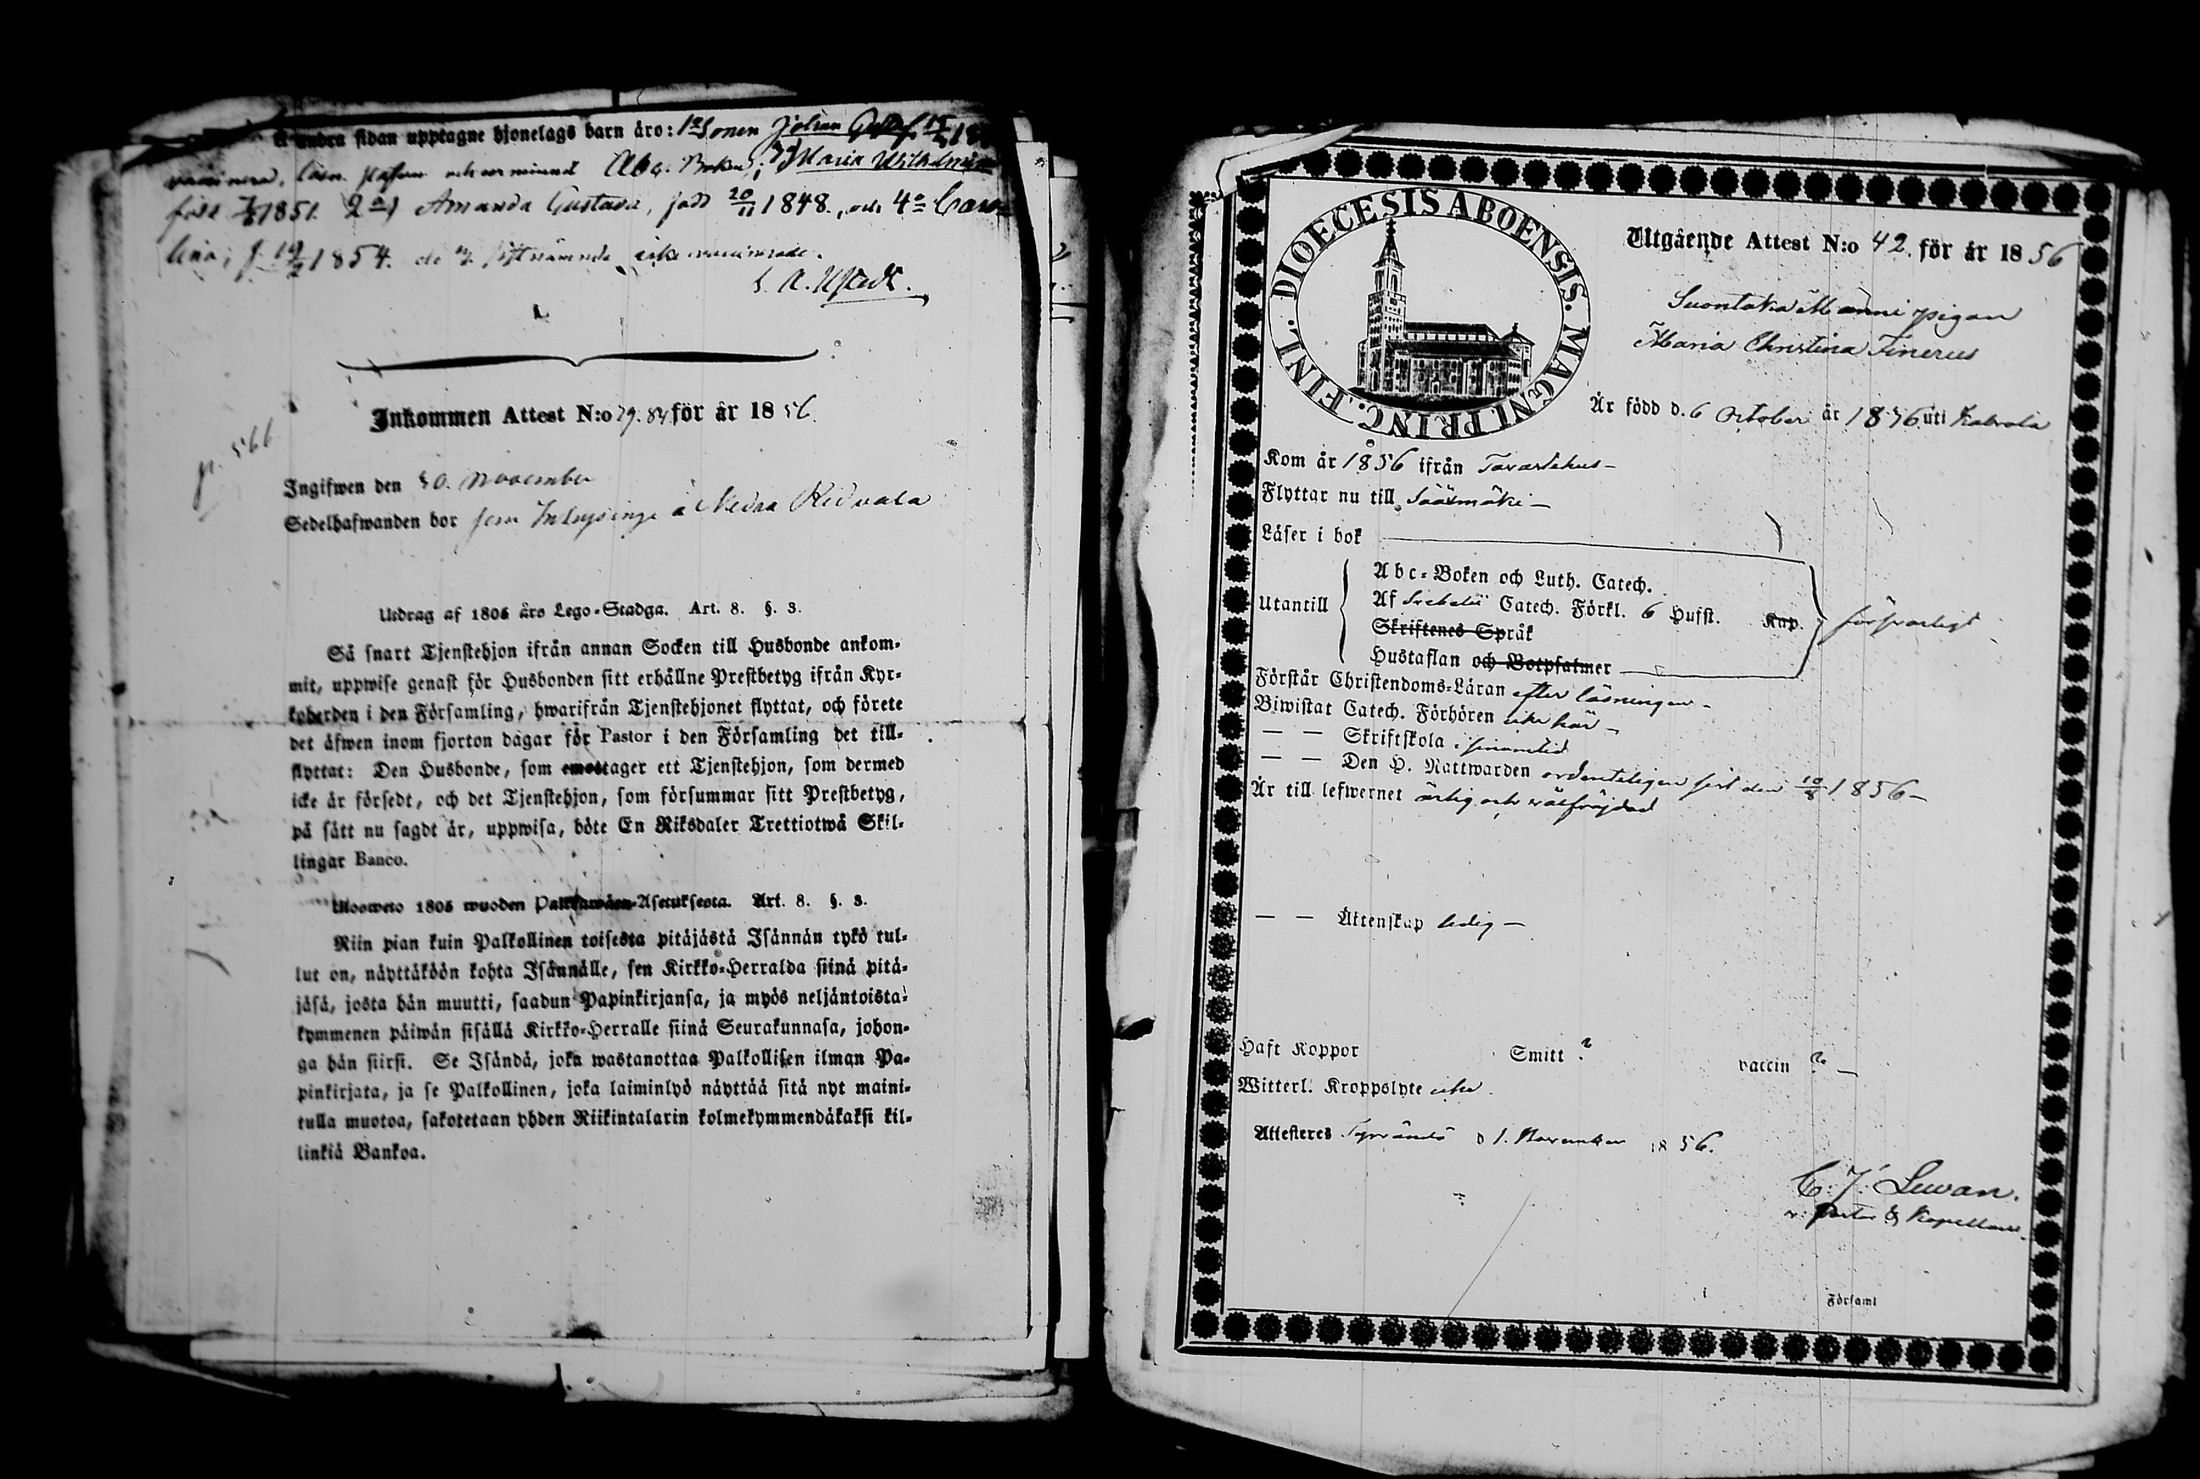 å andra sidan upptagne hjonelags barn äro: 1º Sonen Johan
Abc. Boken; Maria Wilhelmina
född 1851. Amanda Gustava, född 20/11 1848., och 4º Caro-
lina; f. 1854.
Inkommen Attest N:o 79.84 för år 1856.
p. 566
Ingifwen den 30. November
Sedelhafwanden bor som Inhysinge å Nedra Ridvala
Utdrag af 1805 års Lego-Stadga. Art. 8. §. 3.
Så snart Tjenstehjon ifrån annan Socken till Husbonde ankom-
mit, uppwise genast för Husbonden sitt erhållne Prestbetyg ifrån Kyr-
koherden i den Församling, hwarifrån Tjenstehjonet flyttat, och förete
det äfwen inom fjorton dagar för Pastor i den Församling det till-
flyttat: Den Husbonde, som emottager ett Tjenstehjon, som dermed
icke är försedt, och det Tjenstehjon, som försummar sitt Prestbetyg,
på sätt nu sagdt är, uppwisa, böte En Riksdaler Trettiotwå Skil-
lingar Banco.
Uloweto 1805 wuoden Palkkawäen-Asetuksesta. Art. 8. §. 3.
Niin pian kuin Palkollinen toisesta pitäjästä Isännän tykö tul-
lut on, näyttäköön kohta Isännälle, sen Kirkko-Herralda siinä pitä-
jäsä, josta hän muutti, saadun Papinkirjansa, ja myös neljäntoista-
kymmenen päiwän sisällä Kirkko-Herralle siinä Seurakunnasa, johon-
ga hän siirsi. Se Isändä, joka wastanottaa Palkollisen ilman Pa-
pinkirjata, ja se Palkollinen, joka laiminlyö näyttää sitä nyt maini-
tulla muotoa, sakotetaan yhden Riikintalarin kolmekymmendäkaksi kil-
linkiä Bankoa.
DIOECESIS ABOENSIS. MAGNI. PRINC. FINL.
Utgående Attest N:o 42. för år 1856
Suontaka Manni pigan
Maria Christina Finerus
Är född d. 6 October år 1836 uti Kalvola
Kom år 1856 ifrån Tavastehus –
Flyttar nu till Sääxmäki –
Läser i bok
Utantill
Abc-Boken och Luth. Catech.
Af Svebelii Catech. Förkl. 6 Hufst. Kap.
Skriftenes Språk
Hustaflan och Botpsalmer
försvarligt
Förstår Christendoms-Läran efter läsningen –
Biwistat Catech. Förhören icke här –
— — Skriftskola i sinom tid
— — Den H. Nattwarden ordenteligen sist den 10/8 1856 –
Är till lefwernet ärlig och välfrejdad
— — Ättenskap ledig –
Haft Koppor Smitt ? vaccin ? –
Witterl. Kroppslyte icke
Attesteres Tyrväntö d 1. November 1856.
C. J. Lewan.
v. Pastor & Kapellan.
i Församl